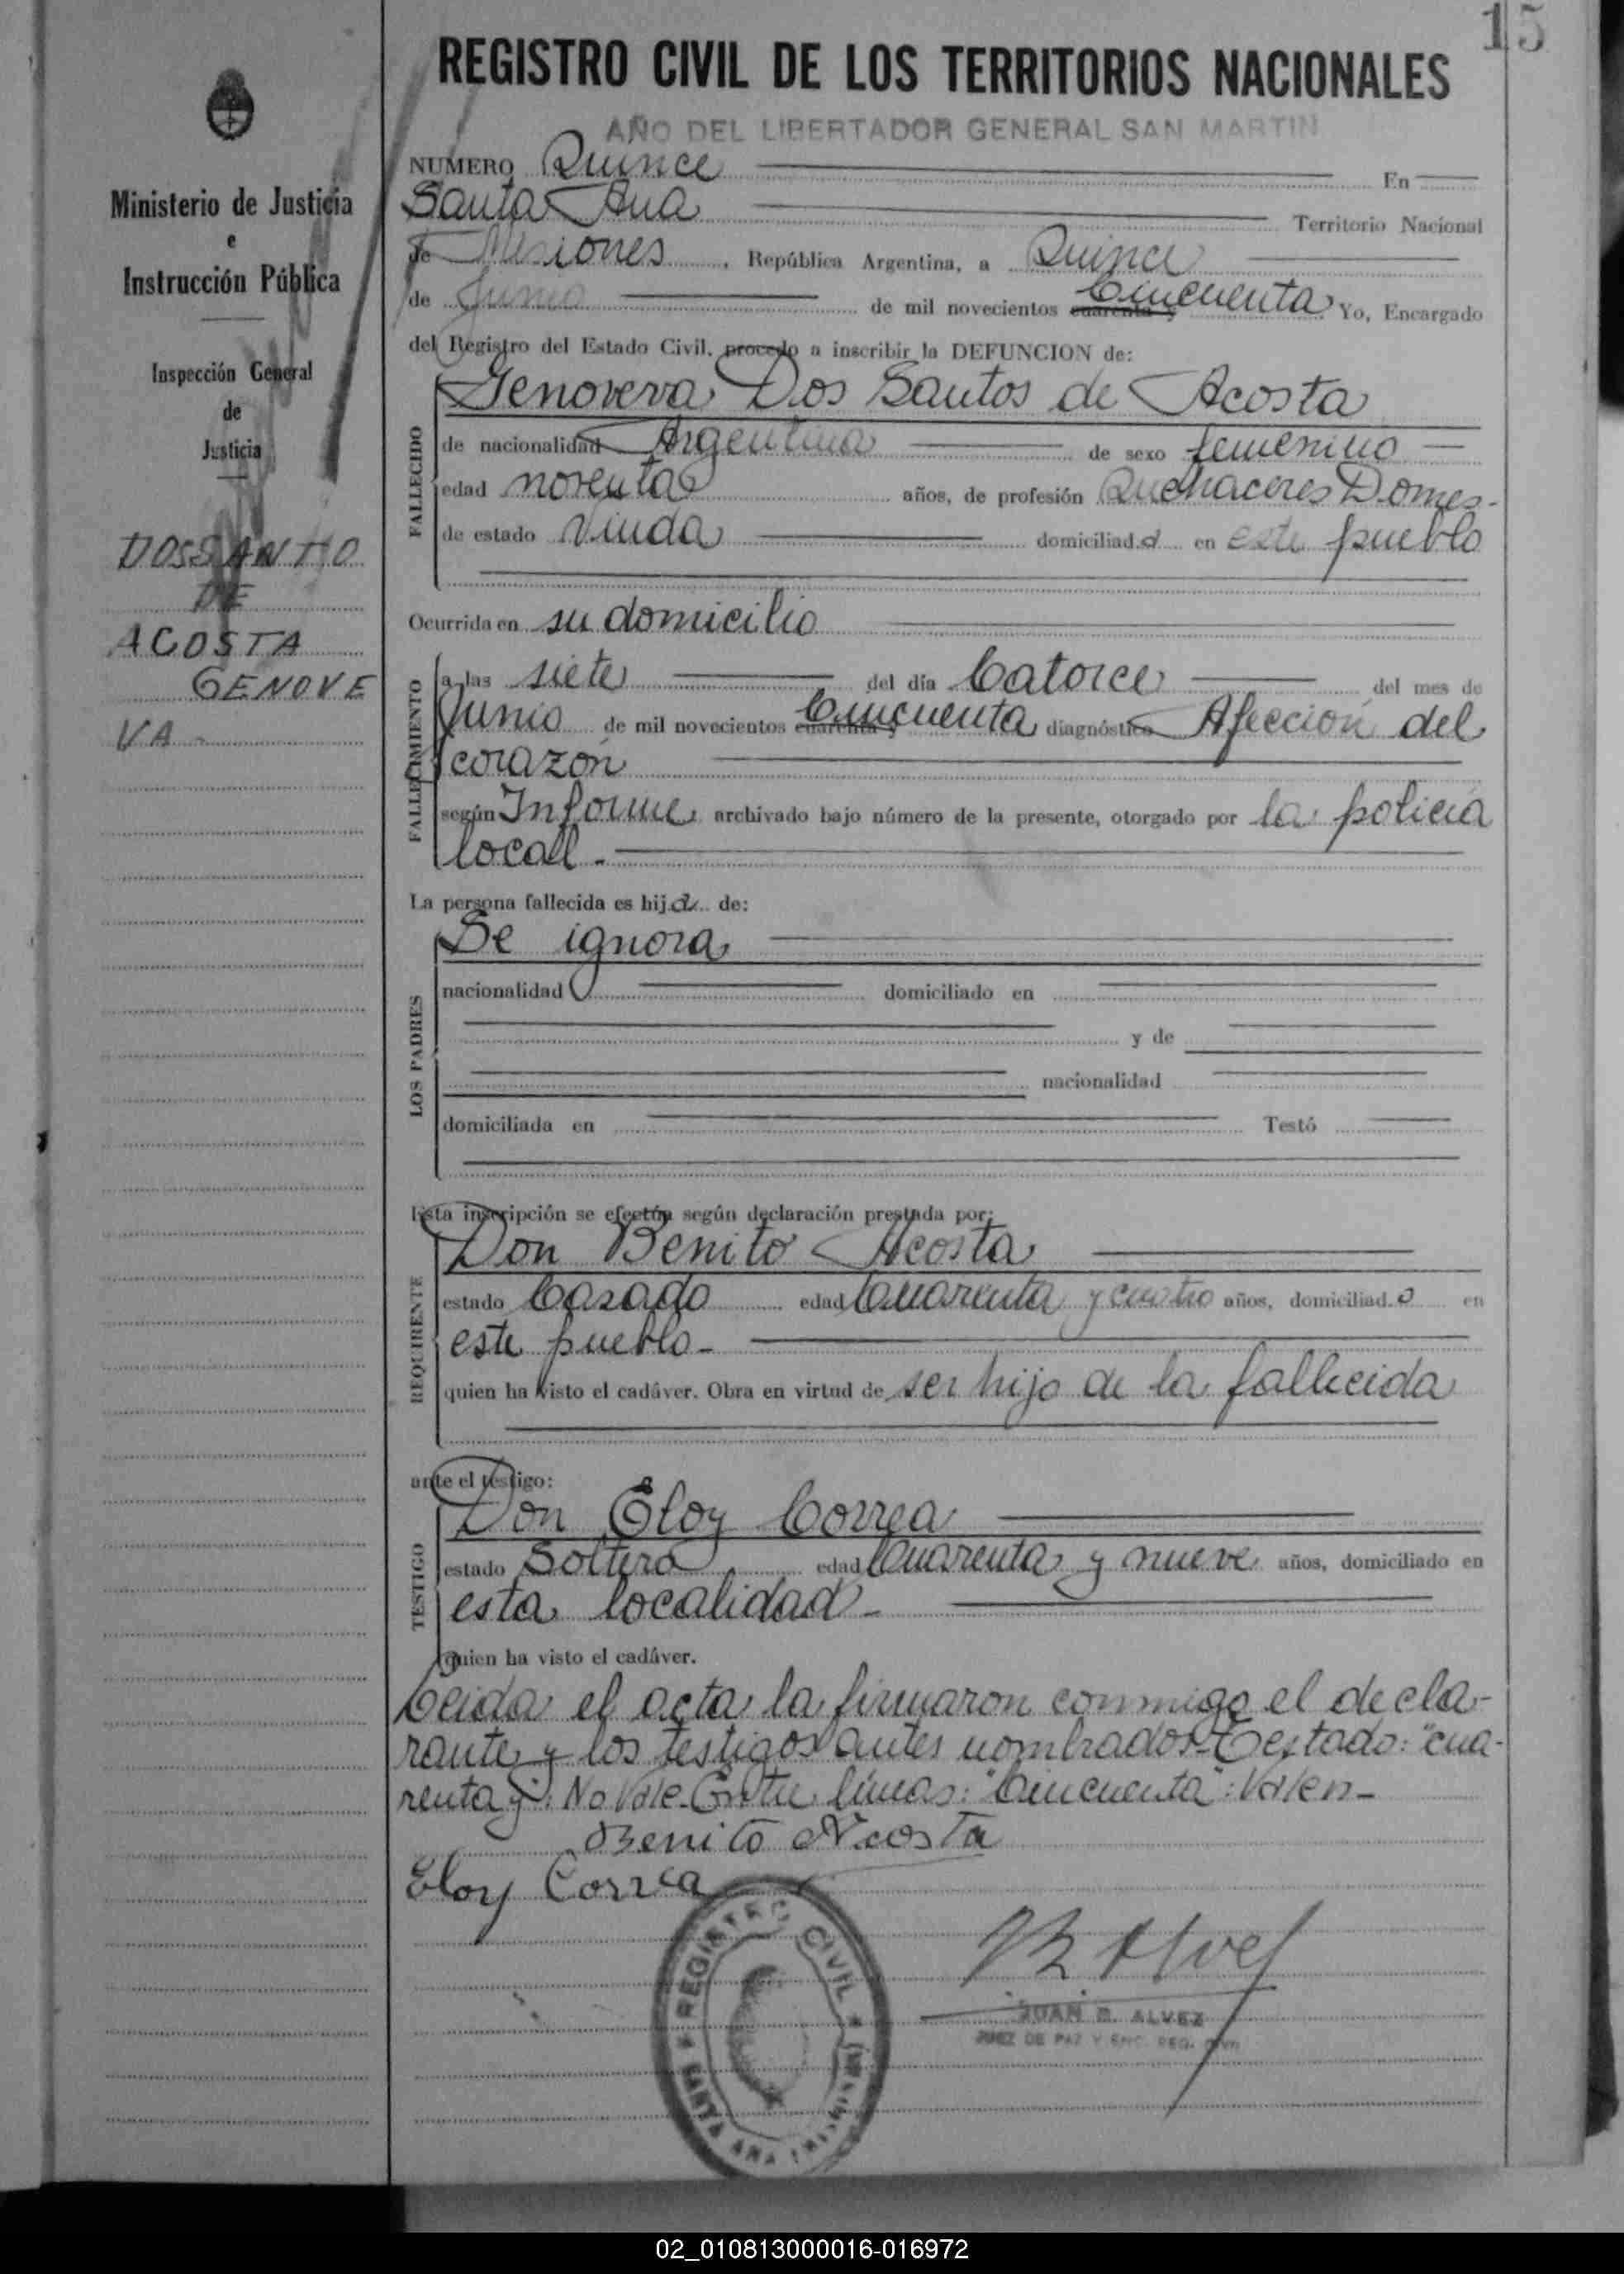 15
REGISTRO CIVIL DE LOS TERRITORIOS NACIONALES
AÑO DEL LIBERTADOR GENERAL SAN MARTIN
Ministerio de Justicia
e
Instrucción Pública
Inspección General
de
Justicia
DOSSANTO
DE
ACOSTA
GENOVE
VA -
NUMERO Quince En
Santa Ana Territorio Nacional
de Misiones, República Argentina, a Quince
de Junio de mil novecientos cuarenta y Cincuenta Yo, Encargado
del Registro del Estado Civil, procedo a inscribir la DEFUNCION de:
FALLECIDO
Genoveva Dos Santos de Acosta
de nacionalidad Argentina de sexo femenino
edad noventa años, de profesión Quehaceres Domes-
de estado Viuda domiciliada en este pueblo
Ocurrida en su domicilio
FALLECIMIENTO
a las siete del día Catorce del mes de
Junio de mil novecientos cuarenta y Cincuenta diagnóstico Afección del
corazón
según Informe archivado bajo número de la presente, otorgado por la policía
locall -
La persona fallecida es hija de:
LOS PADRES
Se ignora
nacionalidad domiciliado en
y de
nacionalidad
domiciliada en Testó
Esta inscripción se efectúa según declaración prestada por:
REQUIRENTE
Don Benito Acosta
estado Casado edad Cuarenta y cuatro años, domiciliado en
este pueblo -
quien ha visto el cadáver. Obra en virtud de ser hijo de la fallecida
ante el testigo:
TESTIGO
Don Eloy Correa
estado Soltero edad Cuarenta y nueve años, domiciliado en
esta localidad -
quien ha visto el cadáver.
Leida el acta la firmaron conmigo el decla-
rante y los testigos antes nombrados-Testado: "cua-
renta y": No Vale-Entre líneas: "Cincuenta": Valen-
Benito Acosta
Eloy Correa
REGISTRO CIVIL
SANTA ANA (MISIONES)
JUAN B. ALVEZ
JUEZ DE PAZ Y ENC. REG. CIVIL
02_010813000016-016972